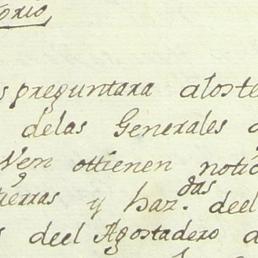 torio,
s preguntara aloste
delas Generales d
Nem ottienen notic
tierras y haz.das deel
s deel Agostadero d